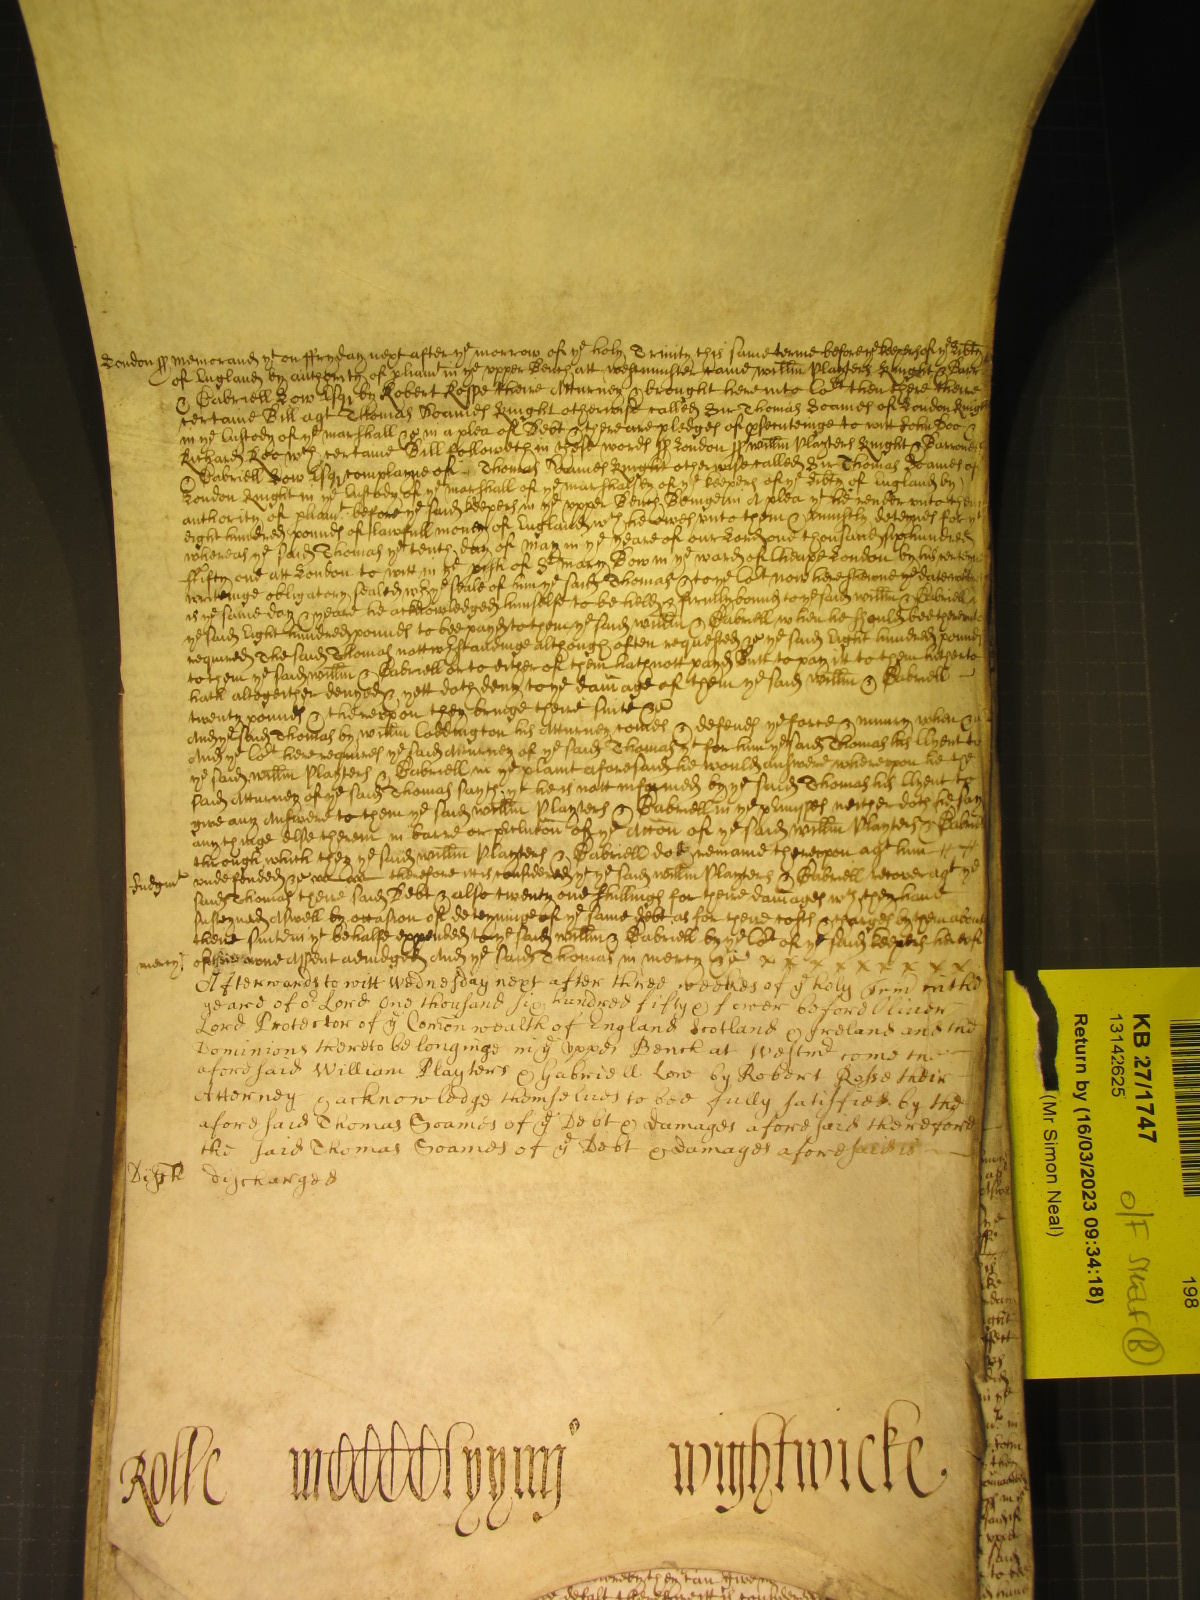 London ss Memorand ye on ffryday next after ye morrow of ye holy Trinity this same terme before ye keepers of ye liberty
of England by authority of pliamt in ye upper Bench att westminster came willm Playters knight & Barr
& Gabriell Low Esqr by Robert Rosse there Attorney & brought here into Cort then there there
certaine Bill agt Thomas Soames knight otherwise called Sir Thomas Soames of London knight
in ye Custody of ye marshall &c in a plea of Debt & there are pledges of psecuteinge to witt John Doo &
Richard Roo wch certaine Bill followeth in these words ss London ss willm Playters knight & Barronet
& Gabriell Low Esqr complaine of Thomas Soames knight otherwise called Sir Thomas Soames of
London knight in ye Custody of ye marshall of ye marshalsey of ye keepers of ye libty of England by
authority of pliamt before ye said keepers in ye upper Bench Beinge in A plea yt he render unto them
eight hundred pounds of lawfull money of England wch he owes unto them & uniustly deteynes for yt
whereas ye said Thomas ye tenth day of May in ye yeare of our Lord one thousand six hundred
ffifty one att London to witt in ye pish of St mary Bow in ye ward of Cheape London by his certaine
writeinge obligatory sealed wth ye seale of him ye said Thomas & to ye Cort now here shewne ye date whereof
is ye same day & yeare he acknowledged himselfe to be held & firmly bound to ye said willm & Gabriell in
ye said Eight hundred pounds to bee payd to them ye said willm & Gabriell when he should bee thereunto
required The said Thomas nottwthstandinge although often requested &c ye said Eight hundred pounds
to them ye said willm & Gabriell or to either of them hath nott payd Butt to pay it to them hitherto
hath altogeither denyed & yett doth deny to ye damage of them ye said willm & Gabriell
twenty pounds & thereupon they bringe there suite &c
And ye said Thomas by willm Coddington his Attorney comes & defends ye force & iniury when &c
And ye Cort here requires ye said Attorney of ye said Thomas yt for him ye said Thomas his Clyent to
ye said willm Playters & Gabriell in ye plaint aforesaid he would answere whereupon he the
said Attorney of ye said Thomas sayth yt he is nott informed by ye said Thomas his Clyent to
give any Answere to them ye said willm Playters & Gabriell in ye pmisses neither doth he say
any thinge else therein in barre or pclution of ye Action of ye said willm Playters & Gabriell
through which they ye said willm Playters & Gabriell doe remaine thereupon agt him
Iudgmt undefended &c therefore itt is considered yt ye said willm Playters & Gabriell recover agt ye
said Thomas there said Debt & also twenty one shillings for there damages wch they have
susteyned Aswell by occasion of deteyninge of ye same debt as for there costs & charges by them about
there suite in yt behalfe expended to ye said willm & Gabriell by ye Cort of ye said keepers here of
mercy of there owne Assent adiudged And ye said Thomas in mercy &c x x x x x x x x x
Afterwards to witt Wednesday next after three weekes of ye holy Trinity in the
yeare of or Lord One thousand six hundred fifty & fower before Oliver
Lord Protector of ye Comon wealth of England Scotland & Ireland and the
Dominions thereto belonginge in ye upper Bench at Westmr come the
aforesaid William Playters & Gabriell Low by Robert Rosse their
Attorney & acknowledge themselves to bee fully satisfied by the
aforesaid Thomas Soames of ye Debt & damages aforesaid therefore
the said Thomas Soames of ye Debt & damages aforesaid is
Disch discharged
Rolle wightwicke.
198
KB 27/1747
13142625
O/F Staf (B)
Return by (16/03/2023 09:34:18)
(Mr Simon Neal)